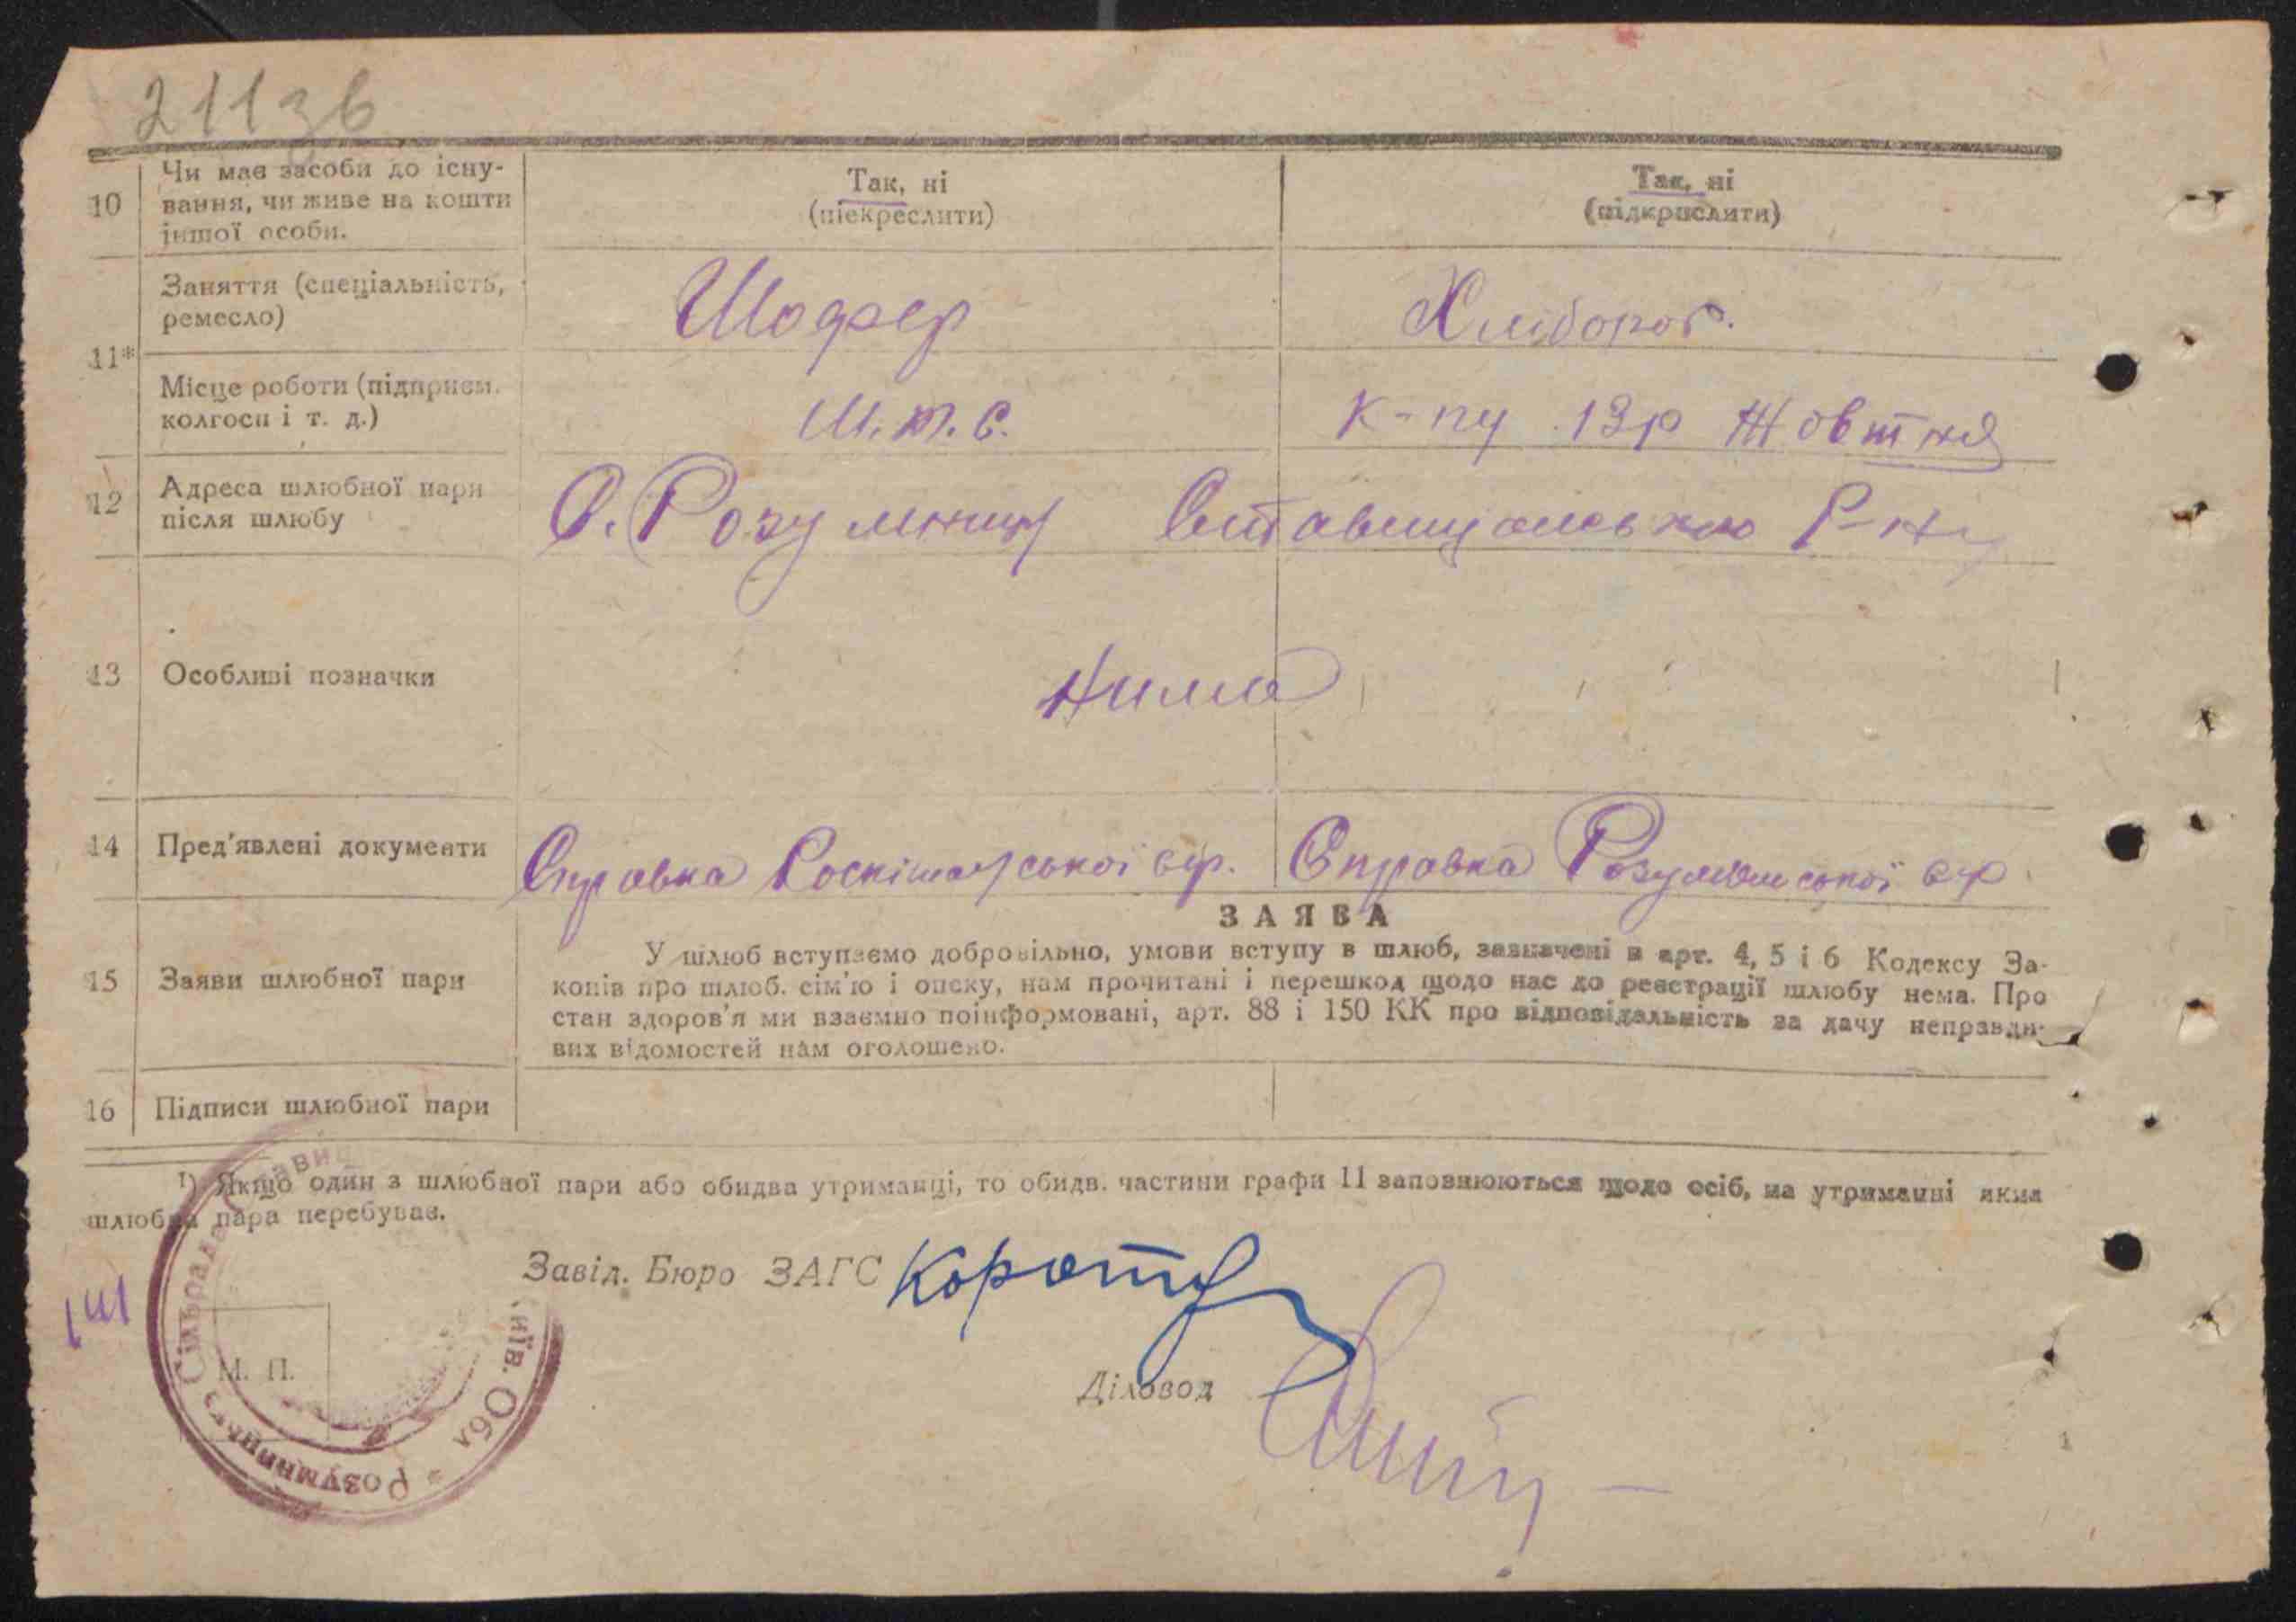 211зв
10
Чи має засоби до існу-
вання, чи живе на кошти
іншої особи.
Так, ні
(піекреслити)
Так, ні
(підкрислити)
11*
Заняття (спеціальність,
ремесло)
Шофер
Хлібороб.
Місце роботи (підприєм.
колгосп і т. д.)
М.т.с.
К-пу 13р Жовтня
12
Адреса шлюбної пари
після шлюбу
С. Розумниці Ставищанського Р-ну
13
Особливі позначки
Нима
14
Пред'явлені документи
Справка Роскішнянської с/р.
Справка Розумницької с/р.
15
Заяви шлюбної пари
ЗАЯВА
У шлюб вступаємо добровільно, умови вступу в шлюб, зазначені в арт. 4, 5 і 6 Кодексу За-
конів про шлюб. сім'ю і опеку, нам прочитані і перешкод щодо нас до реєстрації шлюбу нема. Про
стан здоров'я ми взаємно поінформовані, арт. 88 і 150 КК про відповідальність за дачу неправди-
вих відомостей нам оголошено.
16
Підписи шлюбної пари
1) Якщо один з шлюбної пари або обидва утриманці, то обидв. частини графи 11 заповнюються щодо осіб, на утриманні яких
шлюбна пара перебуває.
Завід. Бюро ЗАГС
М. П.
Діловод
Сільрада Київ. Обл